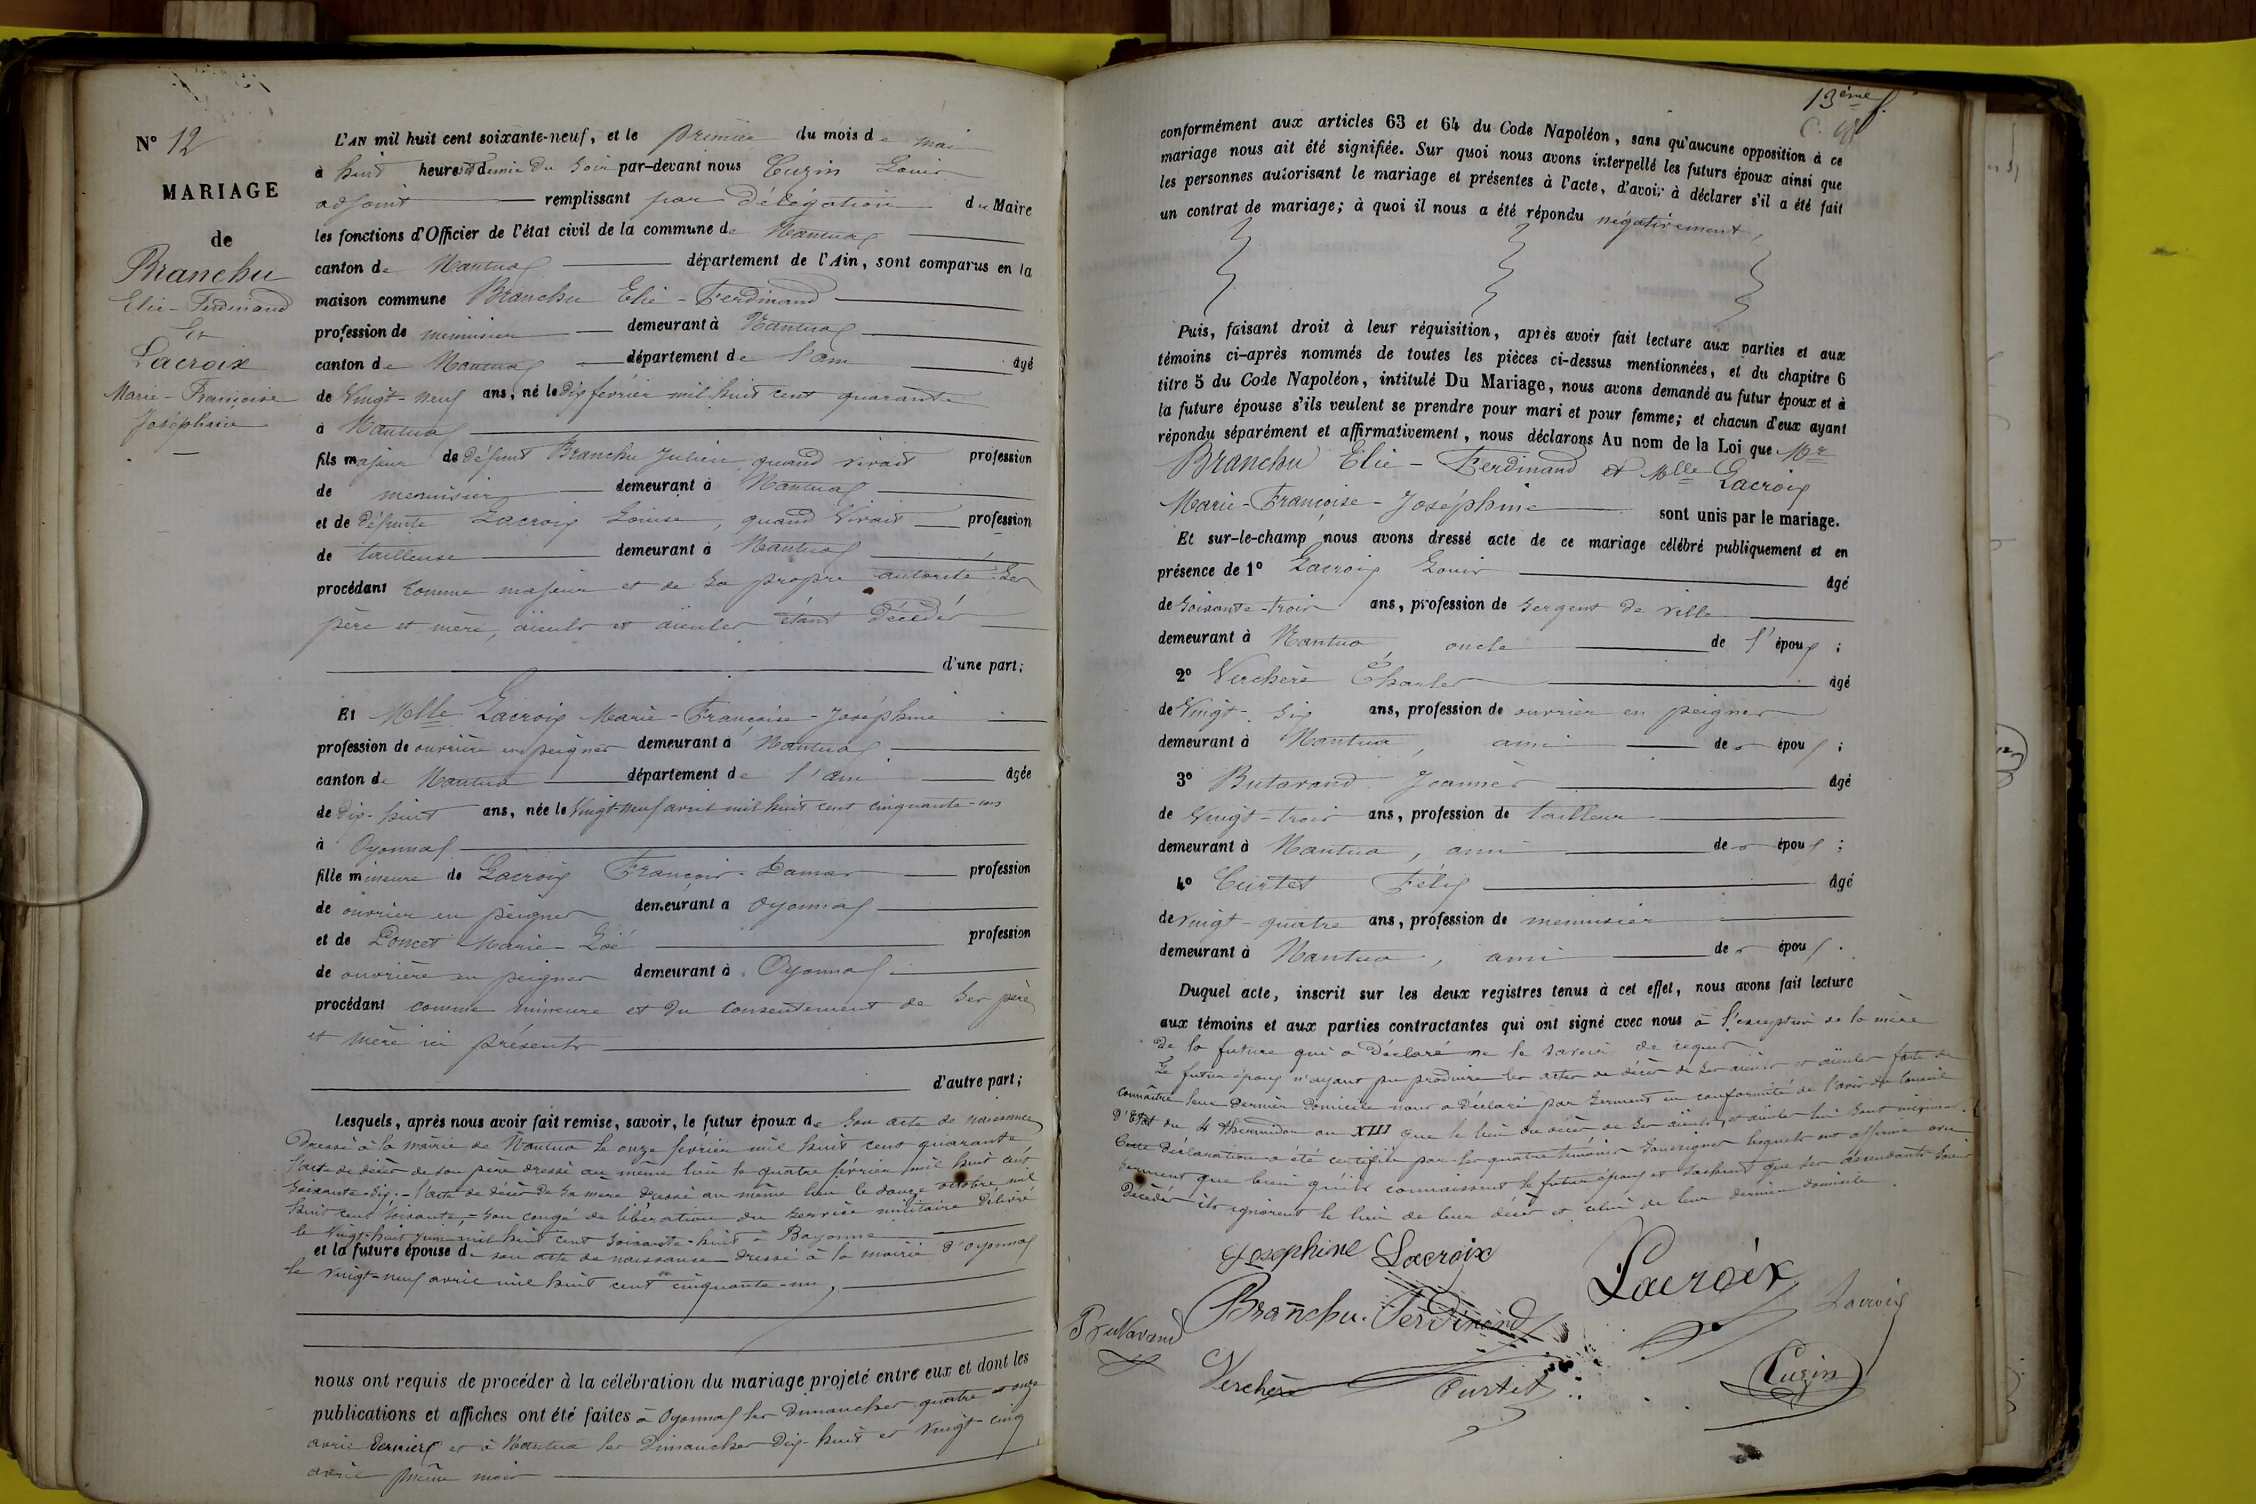 N° 12
MARIAGE
de
Branchu
Elie-Ferdinand
Et
Lacroix
Marie-Françoise
Joséphine
L'AN mil huit cent soixante-neuf, et le premier du mois de mai
à huit heures et demie du soir par-devant nous Cuzin Louis
adjoint remplissant par délégation du Maire
les fonctions d'Officier de l'état civil de la commune de Nantua
canton de Nantua département de l'Ain, sont comparus en la
maison commune Branchu Elie-Ferdinand
profession de menuisier demeurant à Nantua
canton de Nantua département de l'ain âgé
de Vingt-neuf ans, né le dix février mil huit cent quarante
à Nantua
fils majeur de défunt Branchu Julien quand vivait profession
de menuisier demeurant à Nantua
et de défunte Lacroix Louise, quand vivait profession
de tailleuse demeurant à Nantua
procédant comme majeur et de sa propre autorité ses
père et mère, aïeuls et aïeules étant décédés
d'une part;
Et Melle Lacroix Marie-Françoise-Joséphine
profession de ouvrière en peignes demeurant à Nantua
canton de Nantua département de l'ain âgée
de dix-huit ans, née le Vingt-neuf avril mil huit cent cinquante-un
à Oyonnax
fille mineure de Lacroix François-Damas profession
de ouvrier en peignes demeurant à Oyonnax
et de Poncet Marie-Zoé profession
de ouvrière en peignes demeurant à Oyonnax
procédant comme mineure et du consentement de ses père
et mère ici présents
d'autre part;
Lesquels, après nous avoir fait remise, savoir, le futur époux de son acte de naissance
dressé à la mairie de Nantua le onze février mil huit cent quarante,
l'acte de décès de son père dressé au même lieu le quatre février mil huit cent
soixante-six; - l'acte de décès de sa mère dressé au même lieu le douze octobre mil
huit cent soixante, - son congé de libération du service militaire délivré
le vingt-huit juin mil huit cent soixante-huit à Bayonne
et la future épouse de son acte de naissance dressé à la mairie d'oyonnax
le vingt-neuf avril mil huit cent cinquante-un,
nous ont requis de procéder à la célébration du mariage projeté entre eux et dont les
publications et affiches ont été faites à Oyonnax les dimanches quatre et onze
avril derniers et à Nantua les dimanches dix-huit et vingt-cinq
avril même mois
13ème f.
conformément aux articles 63 et 64 du Code Napoléon, sans qu'aucune opposition à ce
mariage nous ait été signifiée. Sur quoi nous avons interpellé les futurs époux ainsi que
les personnes autorisant le mariage et présentes à l'acte, d'avoir à déclarer s'il a été fait
un contrat de mariage; à quoi il nous a été répondu négativement,
Puis, faisant droit à leur réquisition, après avoir fait lecture aux parties et aux
témoins ci-après nommés de toutes les pièces ci-dessus mentionnées, et du chapitre 6
titre 5 du Code Napoléon, intitulé Du Mariage, nous avons demandé au futur époux et à
la future épouse s'ils veulent se prendre pour mari et pour femme; et chacun d'eux ayant
répondu séparément et affirmativement, nous déclarons Au nom de la Loi que Mr
Branchu Elie-Ferdinand et Melle Lacroix
Marie-Françoise-Joséphine sont unis par le mariage.
Et sur-le-champ nous avons dressé acte de ce mariage célébré publiquement et en
présence de 1° Lacroix Louis âgé
de soixante-trois ans, profession de sergent de ville
demeurant à Nantua, oncle de l'époux;
2° Verchère Charles âgé
de Vingt-six ans, profession de ouvrier en peignes
demeurant à Nantua, ami des époux;
3° Butavand Joannès âgé
de Vingt-trois ans, profession de tailleur
demeurant à Nantua, ami des époux;
4° Curtet Félix âgé
de vingt-quatre ans, profession de menuisier
demeurant à Nantua, ami des époux.
Duquel acte, inscrit sur les deux registres tenus à cet effet, nous avons fait lecture
aux témoins et aux parties contractantes qui ont signé avec nous à l'exception de la mère
de la future qui a déclaré ne le savoir de requis
Le futur époux n'ayant pu produire les actes de décès de ses aïeuls et aïeules faute de
connaître leur dernier domicile nous a déclaré par serment en conformité de l'avis du Conseil
d'Etat du 4 thermidor an XIII que le lieu du décès de ses aïeuls et aïeules lui sont inconnus.
Cette déclaration a été certifiée par les quatre témoins soussignés lesquels ont affirmé avec
serment que bien qu'ils connaissent le futur époux et sachent que ses ascendants soient
décédés ils ignorent le lieu de leur décès et celui de leur dernier domicile.
Josephine Lacroix
Lacroix
Lacroix
Branchu. Ferdinand
Butavand
Verchère
Curtet
Cuzin